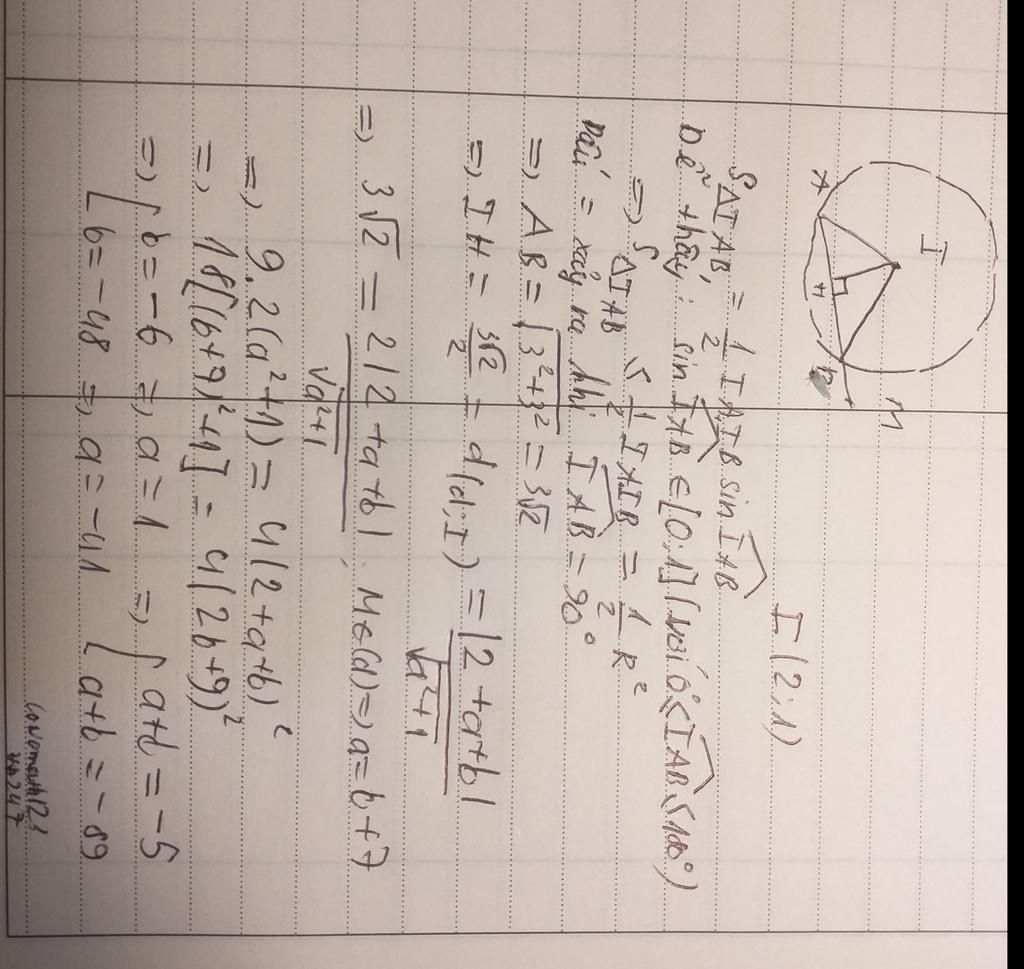 I
A
H
B
M
I(2;1)
S△IAB = 1/2 IA.IB sin IAB
Dễ thấy: sin IAB ∈ [0;1] (với 0° ≤ IAB ≤ 180°)
=> S△IAB ≤ 1/2 IA.IB = 1/2 R²
Dấu = xảy ra khi IAB = 90°
=> AB = √(3²+3²) = 3√2
=> IH = 3√2/2 = d(d;I) = |2+a+b|/√(a²+1)
=> 3√2 = 2|2+a+b|/√(a²+1); M∈(d) => a = b+7
=> 9.2(a²+1) = 4(2+a+b)²
=> 18[(b+7)²+1] = 4(2b+9)²
=> [ b = -6 => a = 1 => [ a+b = -5
[ b = -48 => a = -41 [ a+b = -89